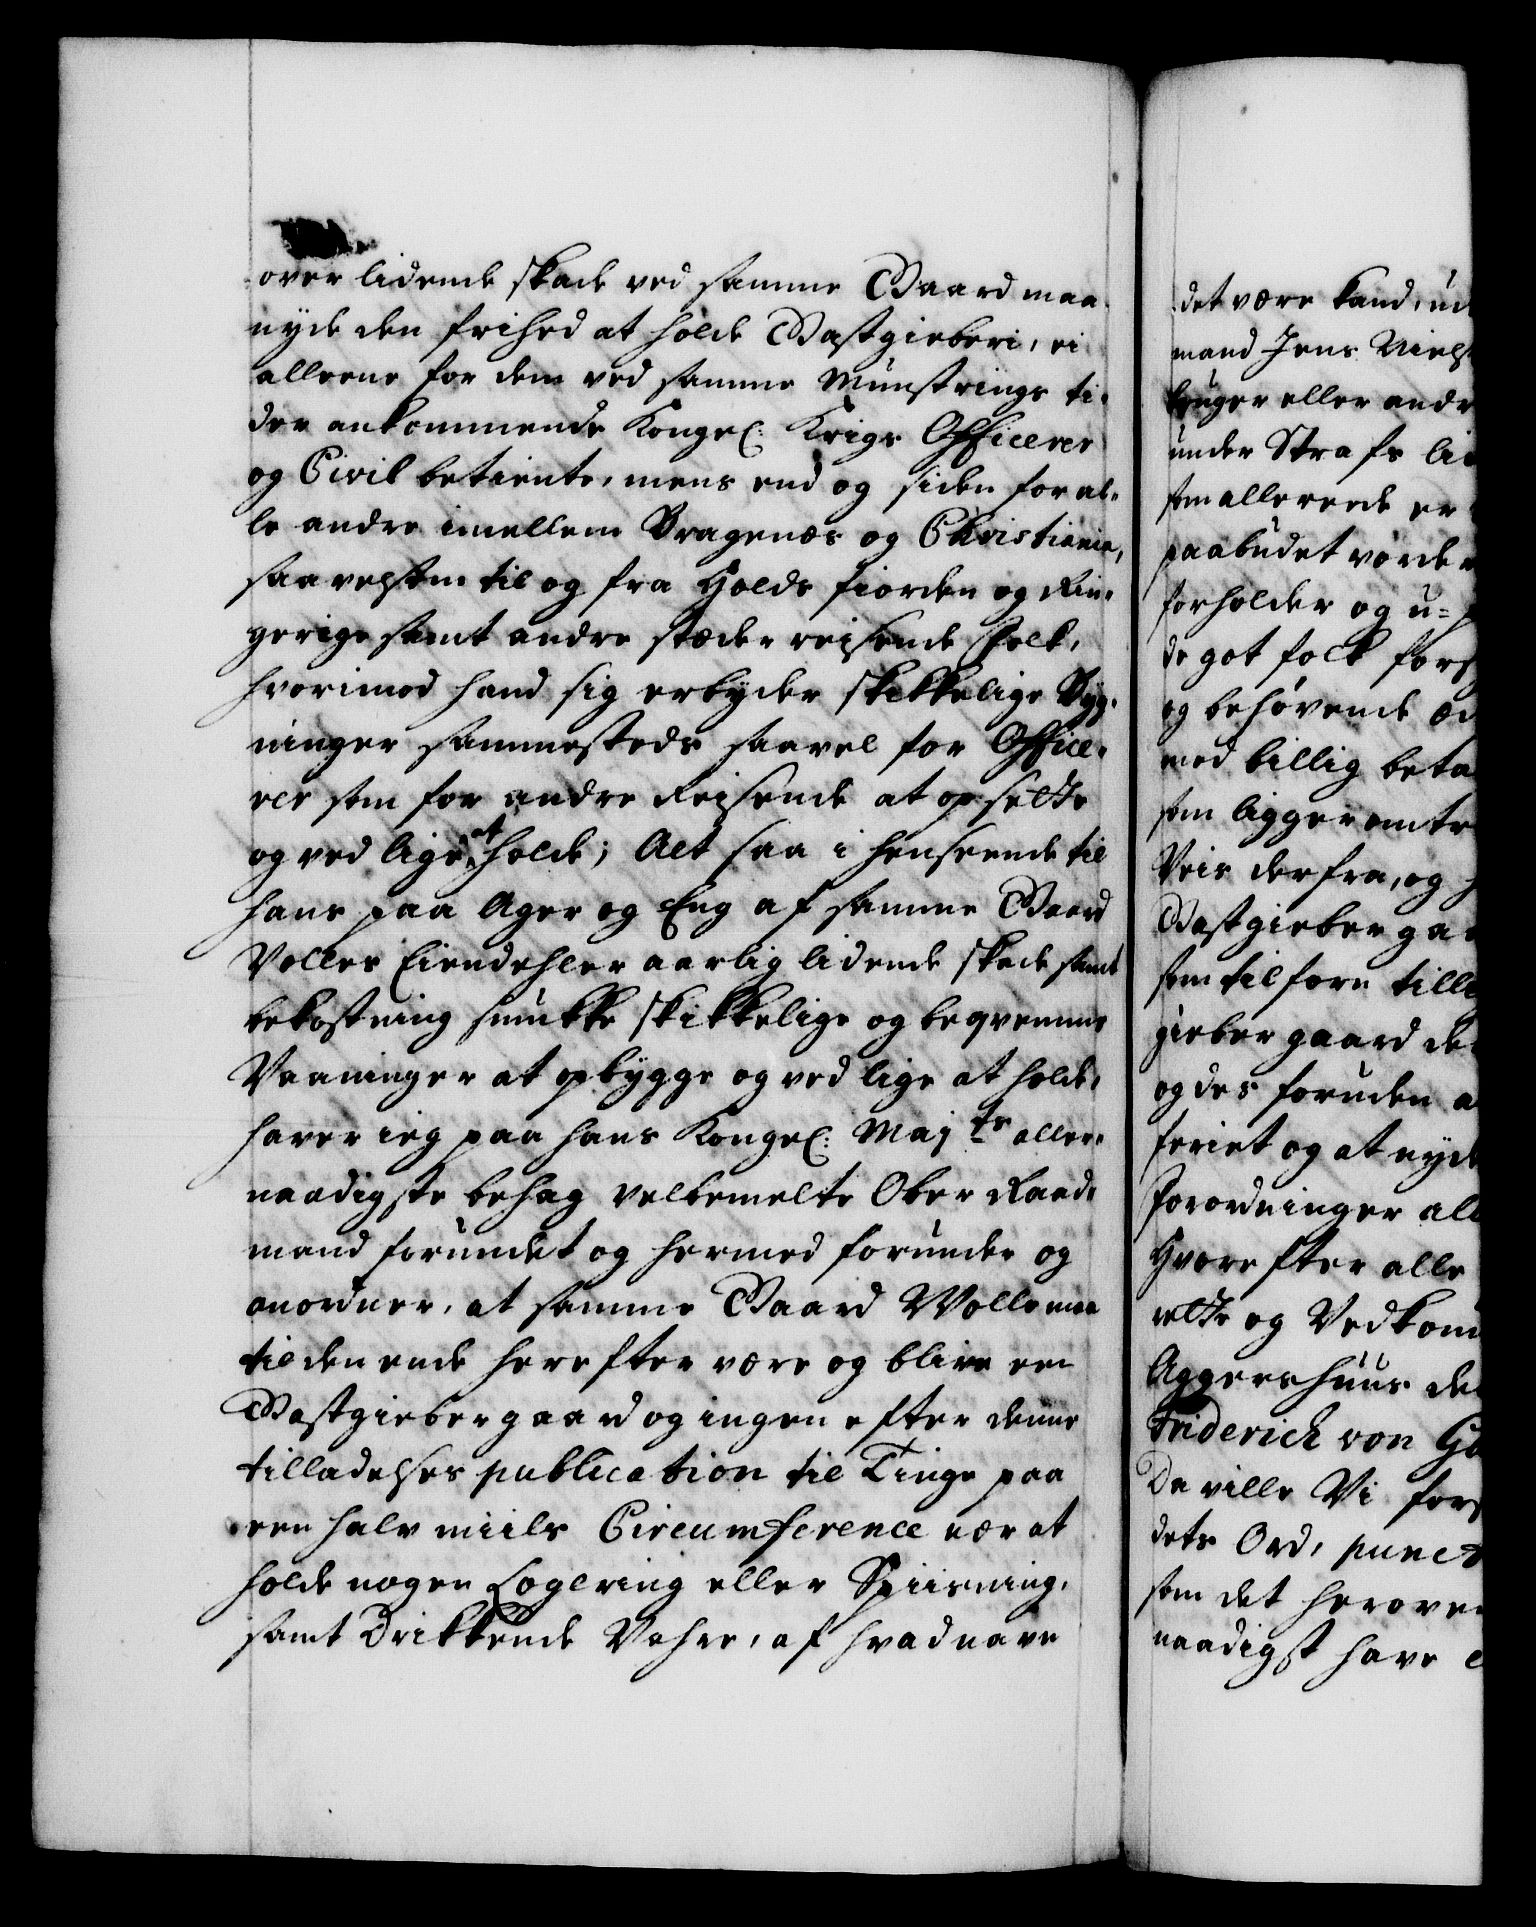 over lidende skade ved samme Gaard maa
nyde den frihed at holde Gastgieberi, ei
alleene for dem ved samme Munstrings ti-
der ankommende Kongel: Krigs Officerer
og Civil betiente, mens end og siden for al-
le andre imellem Bragenæs og Christiania,
saavelsom til og fra Holds fiorden og Rin-
gerige samt andre stæder reisende Folk,
hvorimod hand sig erbyder skikkelige Byg-
ninger sammesteds saavel for Office-
rer som for andre Reisende at opsette
og ved lige at holde; Alt saa i henseende til
hans paa Ager og Eng af samme Gaard
Volles Eiendehler aarlig lidende skade samt
bekostning smukke skikkelige og beqvemme
Vaaninger at opbygge og ved lige at holde,
haver ieg paa hans Kongel: Maj:ts aller-
naadigste behag velbemelte Ober Raad-
mand forundet og hermed forunder og
anordner, at samme Gaard Wolle maa
til den ende herefter være og blive een
Gastgiebergaard og ingen efter denne
tilladelses publication til Tinge paa
een halv miils Circumference nær at
holde nogen Logering eller Spiisning,
samt Drikkende Vahre, af hvad navn
det være kand, ud
mand Jens Niels
bruger eller andr
under Straf
som allerede er
paabudet vorde
forholder og u-
de got folk fors
og behøvende
med billig beta
som ligger omtr
Veis derfra, og
Gastgieber gaa
som tilforn till
gieber gaard de
og des foruden a
feriet og at nyde
Forordninger all
Hvorefter alle
rette og Vedkom
Aggershuus de
Friderich von Ga
Da ville Vi fors
dets Ord, punct
som det herove
naadigst have